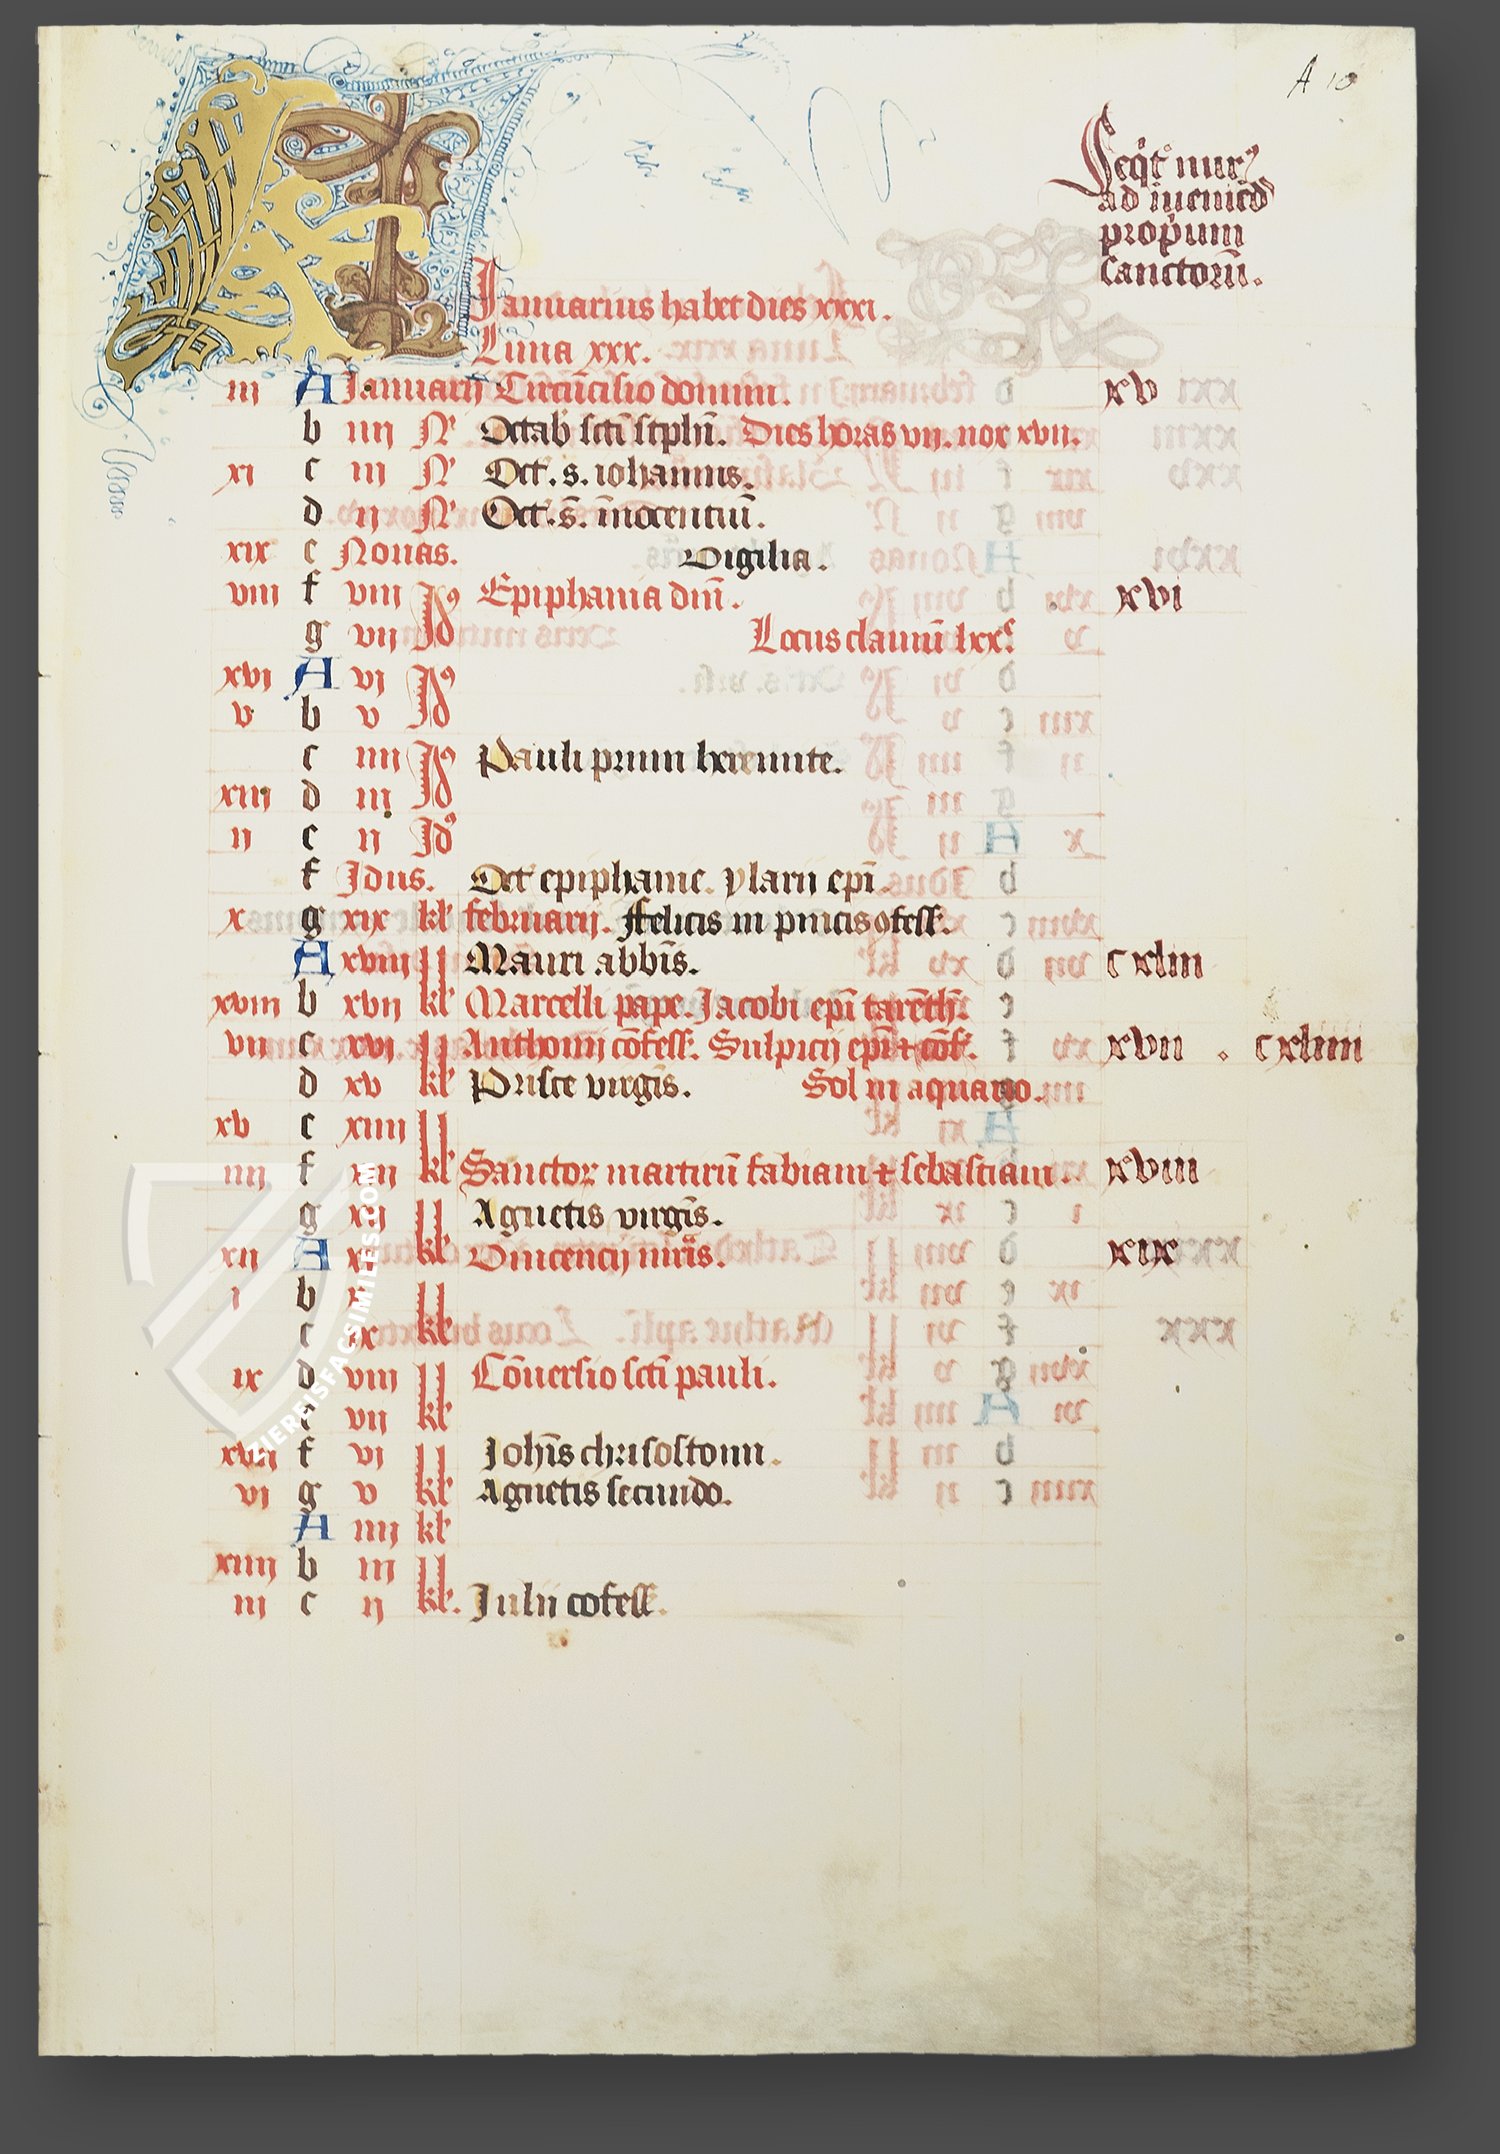 A 10
Seqt̄ nūr9
ad īueniēd
prop̄um
sanctoꝝ̄.
KL
Januarius habet dies xxxi.
Luna xxx.
iij A Januarij Circūcisio domini. xv
b iiij N9 Octab sctī stphī. Dies horas vij. nox xvij.
xi c iij N9 Oct̄. s. iohannis.
d ij N9 Oct̄. s̄. īnocentiū.
xix e Nonas. Vigilia.
viij f viij Jd9 Epiphania dnī. xvi
g vij Jd Locus clauiū lxxͤ
xvi A vi Jd9
v b v Jd
c iiij Jd9 Pauli primi heremite.
xiij d iij Jd
ij e ij Jd9
f Jdus. Oct̄ epiphanie. ylarij epī.
x g xix kl̄ februarij. ffelicis in pincis 9fess̄.
A xviij kl̄ Mauri abb̄is. cxliij
xviij b xvij kl̄ Marcelli pape. Jacobi epī tarēth̄.
vij c xvi kl̄ Anthonij cōfess̄. Sulpicij epī ⁊ cōf. xvij . cxliiij
d xv kl̄ Prisce virgīs. Sol in aquario.
xv e xiiij kl̄
iiij f xiij kl̄ Sanctoꝝ martirū fabiani ⁊ sebastiani. xviij
g xij kl̄ Agnetis virgīs.
xij A xi kl̄ Vincencij mr̄is. xix
i b x kl̄
c ix kl̄
ix d viij kl̄ Cōuersio sctī pauli.
e vij kl̄
xvij f vi kl̄ Joh̄is chrisostomi.
vi g v kl̄ Agnetis secundo.
A iiij kl̄
xiiij b iij kl̄
iij c ij kl̄. Julij cofess̄.
ZIEREISFACSIMILES.COM